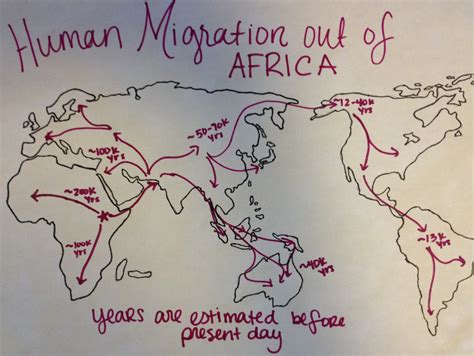 Human Migration out of
AFRICA
~12-40K
yrs
~50-70K
yrs
~100K
yrs
~200K
yrs
~100K
yrs
~13K
yrs
~40K
yrs
years are estimated before
present day